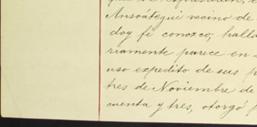 Ansoátegui vecino de
doy fé conozco, halla
riamente parece en
uso expedito de sus
tres de Noviembre de
cuenta y tres, otorgó